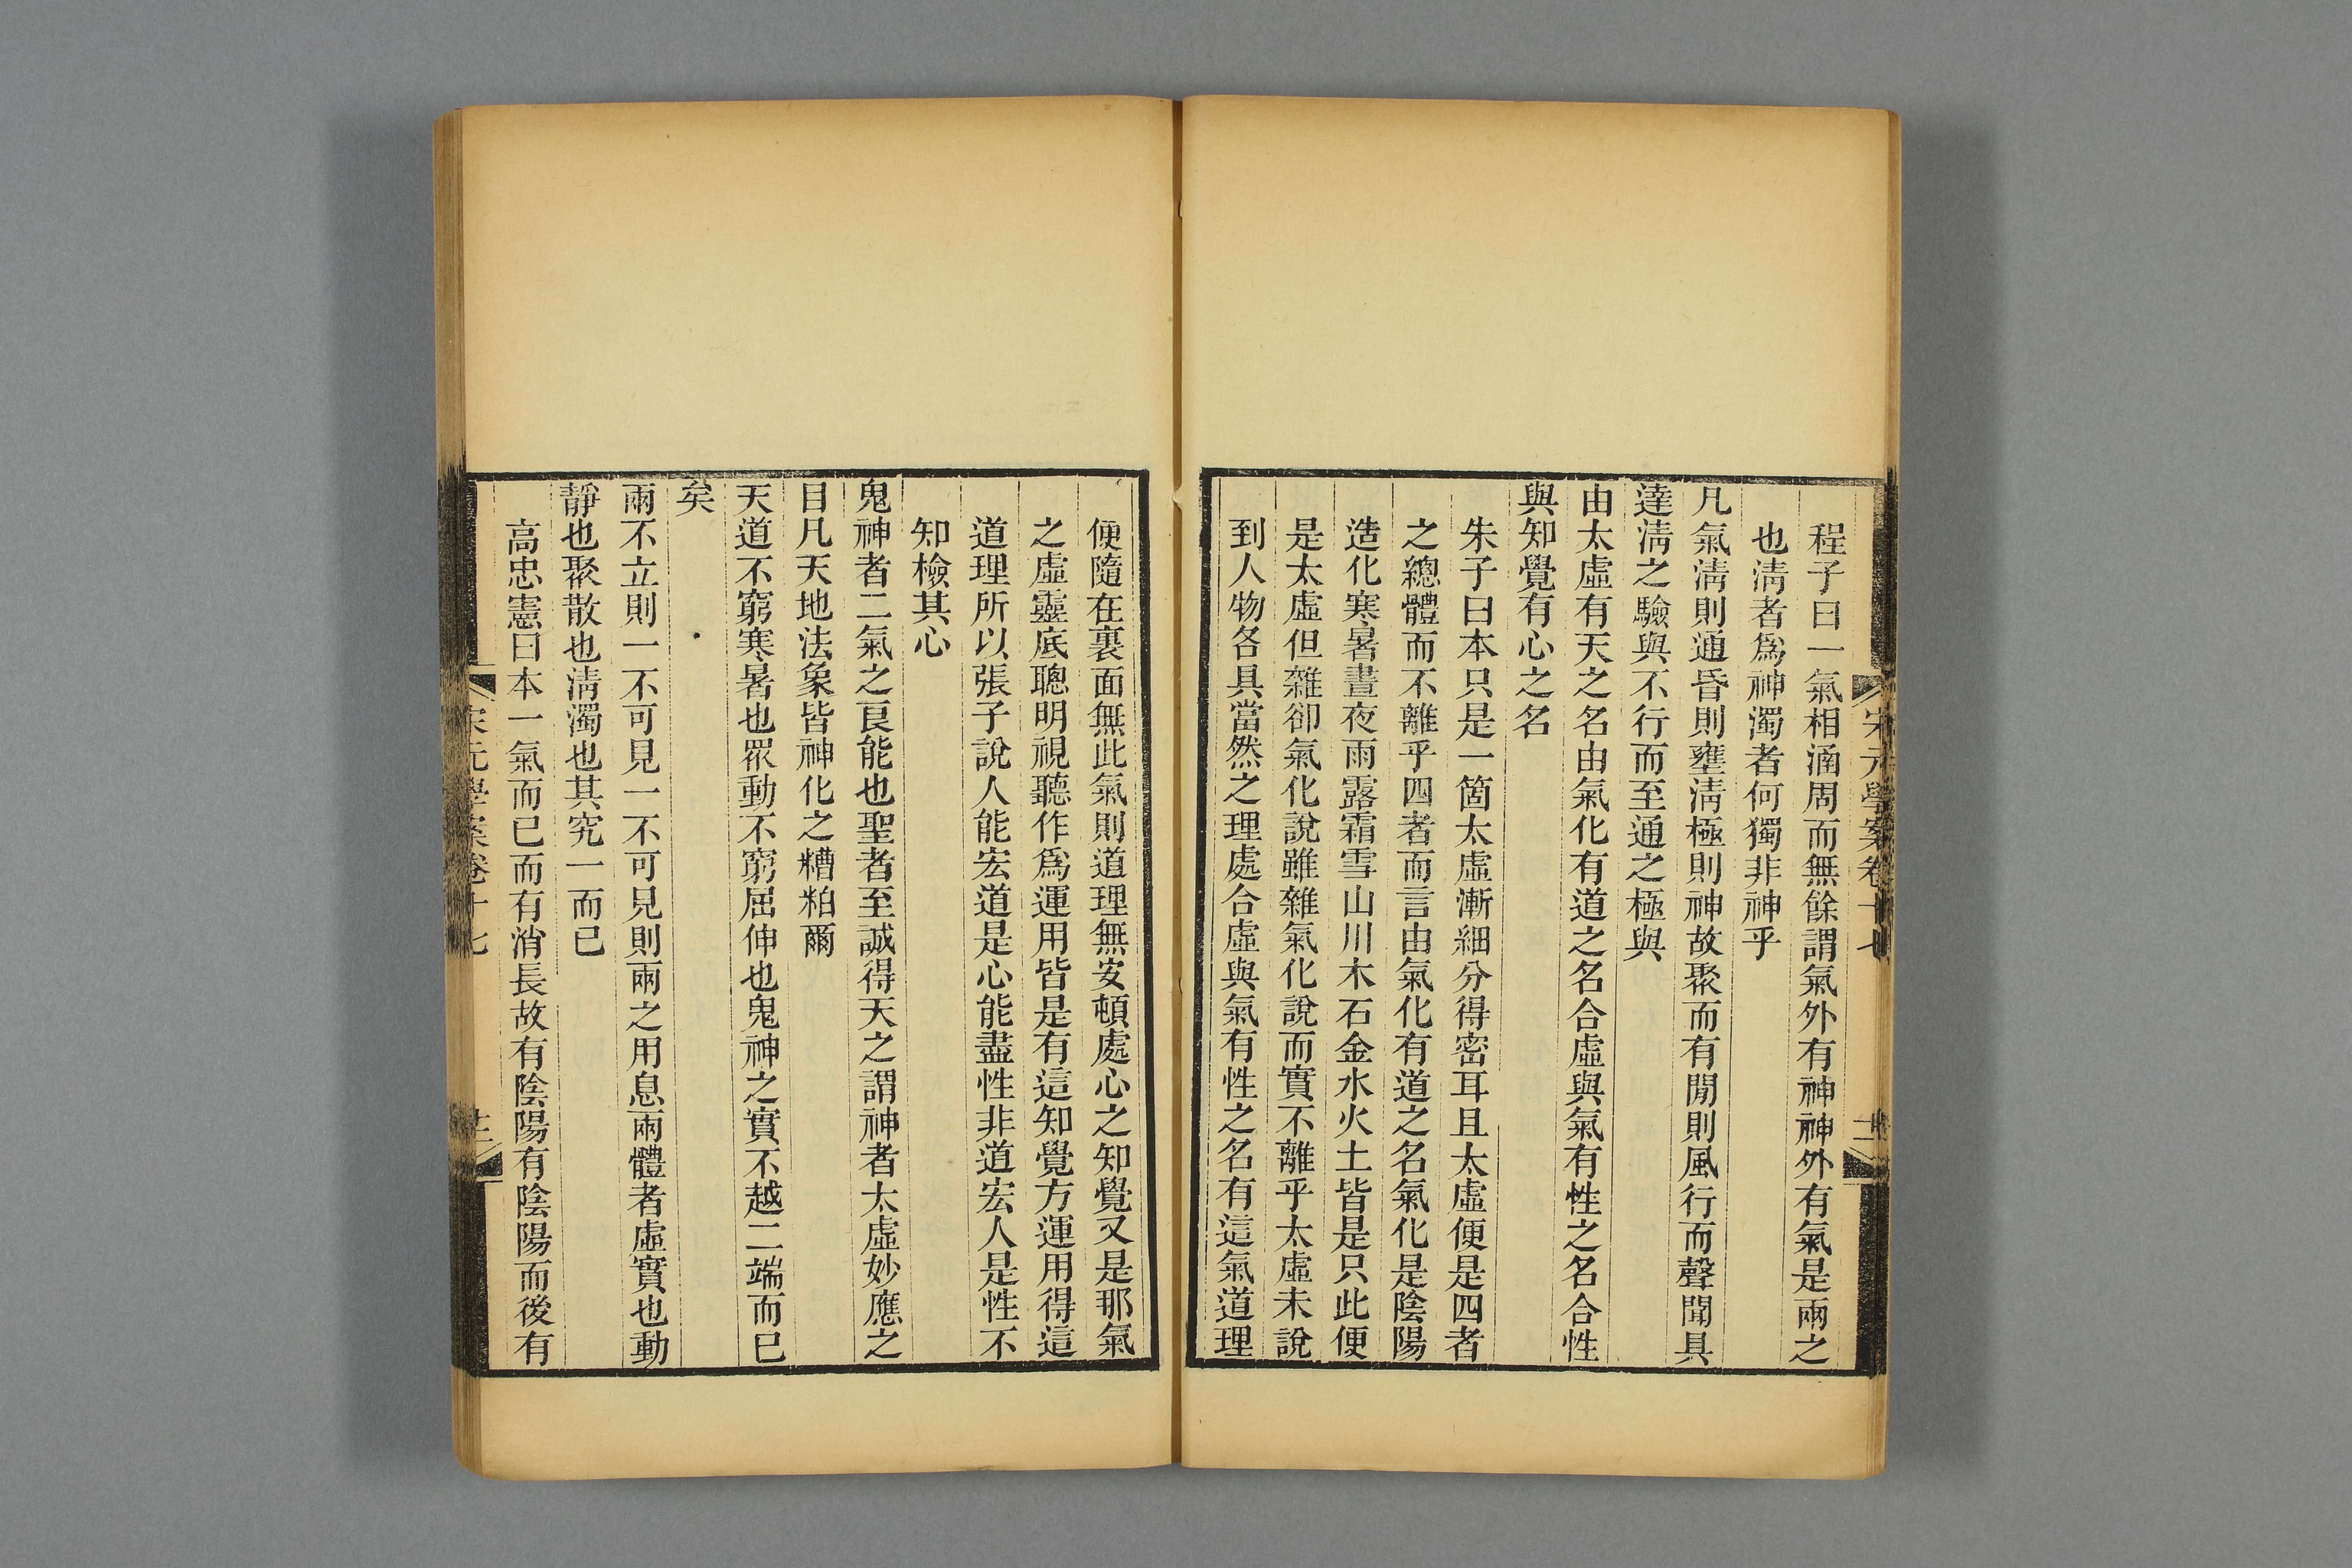 宋元學案卷十七
程子曰一氣相涵周而無餘謂氣外有神神外有氣是兩之
也淸者爲神濁者何獨非神乎
凡氣淸則通昏則壅淸極則神故聚而有閒則風行而聲聞具
達淸之驗與不行而至通之極與
由太虛有天之名由氣化有道之名合虛與氣有性之名合性
與知覺有心之名
朱子曰本只是一箇太虛漸細分得密耳且太虛便是四者
之總體而不離乎四者而言由氣化有道之名氣化是陰陽
造化寒暑晝夜雨露霜雪山川木石金水火土皆是只此便
是太虛但雜卻氣化說雖雜氣化說而實不離乎太虛未說
到人物各具當然之理處合虛與氣有性之名有這氣道理
便隨在裏面無此氣則道理無安頓處心之知覺又是那氣
之虛靈底聰明視聽作爲運用皆是有這知覺方運用得這
道理所以張子說人能宏道是心能盡性非道宏人是性不
知檢其心
鬼神者二氣之良能也聖者至誠得天之謂神者太虛妙應之
目凡天地法象皆神化之糟粕爾
天道不窮寒暑也眾動不窮屈伸也鬼神之實不越二端而已
矣
兩不立則一不可見一不可見則兩之用息兩體者虛實也動
靜也聚散也淸濁也其究一而已
高忠憲曰本一氣而已而有消長故有陰陽有陰陽而後有
宋元學案卷十七